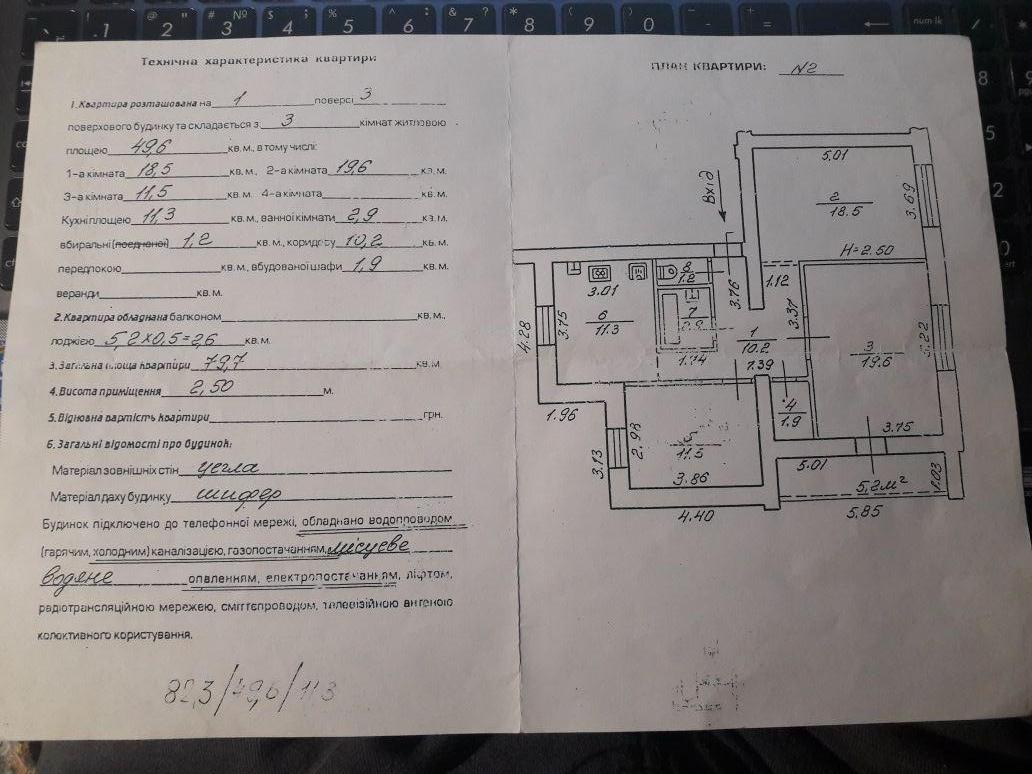 Технічна характеристика квартири
1. Квартира розташована на 1 поверсі 3
поверхового будинку та складається з 3 кімнат житловою
площею 49,6 кв. м., в тому числі:
1-а кімната 18,5 кв. м., 2-а кімната 19,6 кв. м.
3-а кімната 11,5 кв. м. 4-а кімната кв. м.
Кухні площею 11,3 кв. м., ванної кімнати 2,9 кв. м.
вбиральні (поєднаної) 1,2 кв. м., коридору 10,2 кв. м.
передпокою кв. м., вбудованої шафи 1,9 кв. м.
веранди кв. м.
2. Квартира обладнана балконом кв. м.,
лоджією 5,2 х 0,5 = 2,6 кв. м.
3. Загальна площа квартири 79,7 кв. м
4. Висота приміщення 2,50 м.
5. Відновна вартість квартири грн.
6. Загальні відомості про будинок:
Матеріал зовнішніх стін цегла
Матеріал даху будинку шифер
Будинок підключено до телефонної мережі, обладнано водопроводом
(гарячим, холодним) каналізацією, газопостачанням, місцеве
водяне опаленням, електропостачанням, ліфтом,
радіотрансляційною мережею, сміттєпроводом, телевізійною антеною
колективного користування.
82,3/49,6/11,3
ПЛАН КВАРТИРИ: №2
Вхід
5.01
2
18.5
3.69
H=2.50
8
1.2
1.12
3.01
3.76
3.37
7
2.9
6
11.3
3.75
4.28
1
10.2
5.22
3
19.6
1.74
1.39
4
1.9
1.96
2.98
11.5
3.75
3.13
3.86
5.01
5,2 м²
1.03
4.40
5.85